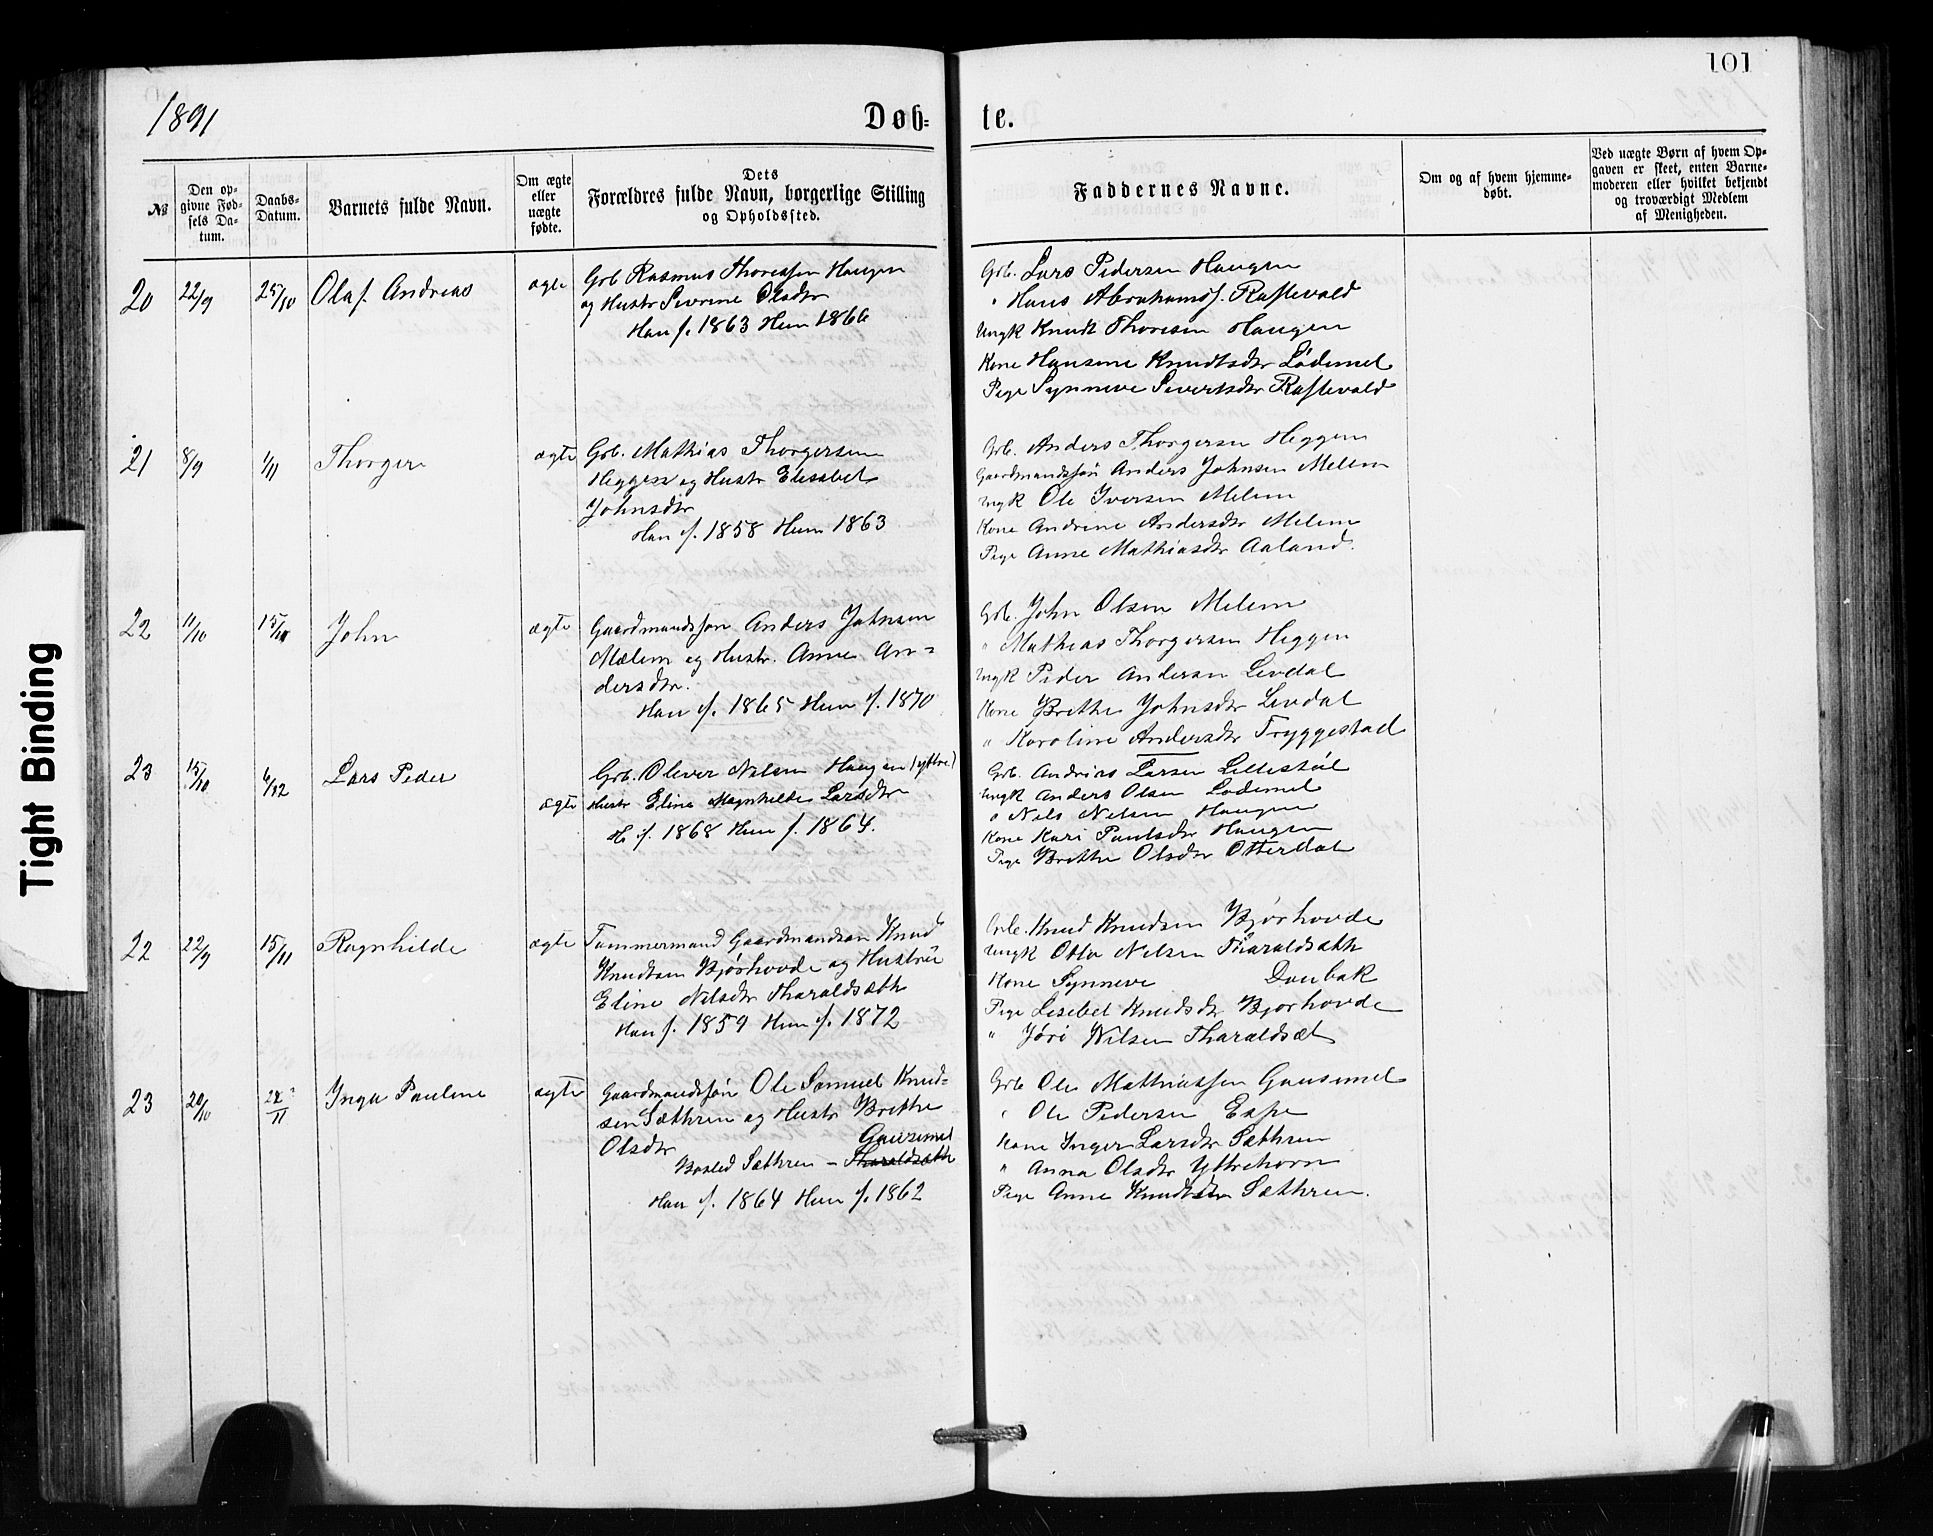 101
1891
Døb-
te.
№
Den op-
givne Fød-
sels Da-
tum.
Daabs-
Datum.
Barnets fulde Navn.
Om ægte
eller
uægte
fødte.
Dets
Forældres fulde Navn, borgerlige Stilling
og Opholdssted.
Faddernes Navne.
Om og af hvem hjemme-
døbt.
Ved uægte Børn af hvem Op-
gaven er skeet, enten Barne-
moderen eller hvilket bekjendt
og troværdigt Medlem
af Menigheden.
20 22/9 25/10 Olaf Andreas ægte
Grb Rasmus Thoressen Haugen
og Hustr Severine Olsdtr
Han f. 1863 Hun 1866
Grb. Lars Pedersen Haugen
" Hans Abrahamsf. Raftevold
Ungk Knut Thoresen Haugen
Kone Hansine Knudtsdtr Lødemel
Pige Synneve Sivertsdtr Raftevold
21 8/9 1/11 Thorger ægte
Grb. Mathias Thorgersen
Heggen og Hustr Elisabet
Johnsdtr
Han f. 1858 Hun 1863
Grb. Anders Thorgersen Heggen
Gaardmandssøn Anders Johnsen Melem
Ungk Ole Iversen Melem
Kone Andrine Andersdtr Melem
Pige Anne Mathiasdtr Aaland.
22 11/10 15/11 John ægte
Gaardmandssøn Anders Johnsen
Mælem og Hustr. Anne An-
dersdtr.
Han f. 1865 Hun f. 1870
Grb. John Olsen Melem
" Mathias Thorgersen Heggen
Ungk Peder Andersen Levdal
Kone Brithe Johnsdtr Levdal
" Karoline Andersdtr Tryggestad
23 15/10 6/12 Lars Peder ægte
Grb. Oliver Nilsen Haugen (yttre)
Hustr Eline Magnhilde Larsdtr
H. f. 1868 Hun f. 1864.
Grb. Andreas Larsen Lillestøl
Ungk Anders Olsen Lødemel
" Nils Nilsen Haugen
Kone Kari Paulsdtr Haugen
Pige Brithe Olsdtr Otterdal
22 22/9 15/11 Ragnhilde ægte
Tømmermand Gaardmandsøn Knud
Knudtsen Bjørhovde og Hustrü
Eline Nilsdtr Tharaldsæth
Han f. 1859 Hun f. 1872
Grb. Knud Knudsen Bjørhovde
Ungk Otto Nilsen Tharaldsæth
Kone Synneve Doubak
Pige Lisebet Knudsdtr Bjørhovde
" Jøri Nilsen Tharaldsæt
23 20/10 22/11 Inga Pauline ægte
Gaardmandssøn Ole Samuel Knud-
sen Sæthren og Hustr Brithe
Olsdtr Gausemel
Bosted Sæthren – Tharaldsæth
Han f. 1864 Hun f. 1862
Grb Ole Mathiassen Gausemel
" Ole Pedersen Espe
Kone Inger Larsdtr Sæthren
" Anna Olsdtr Yttrehorn
Pige Anne Knudtsdtr Sæthren.
Tight Binding